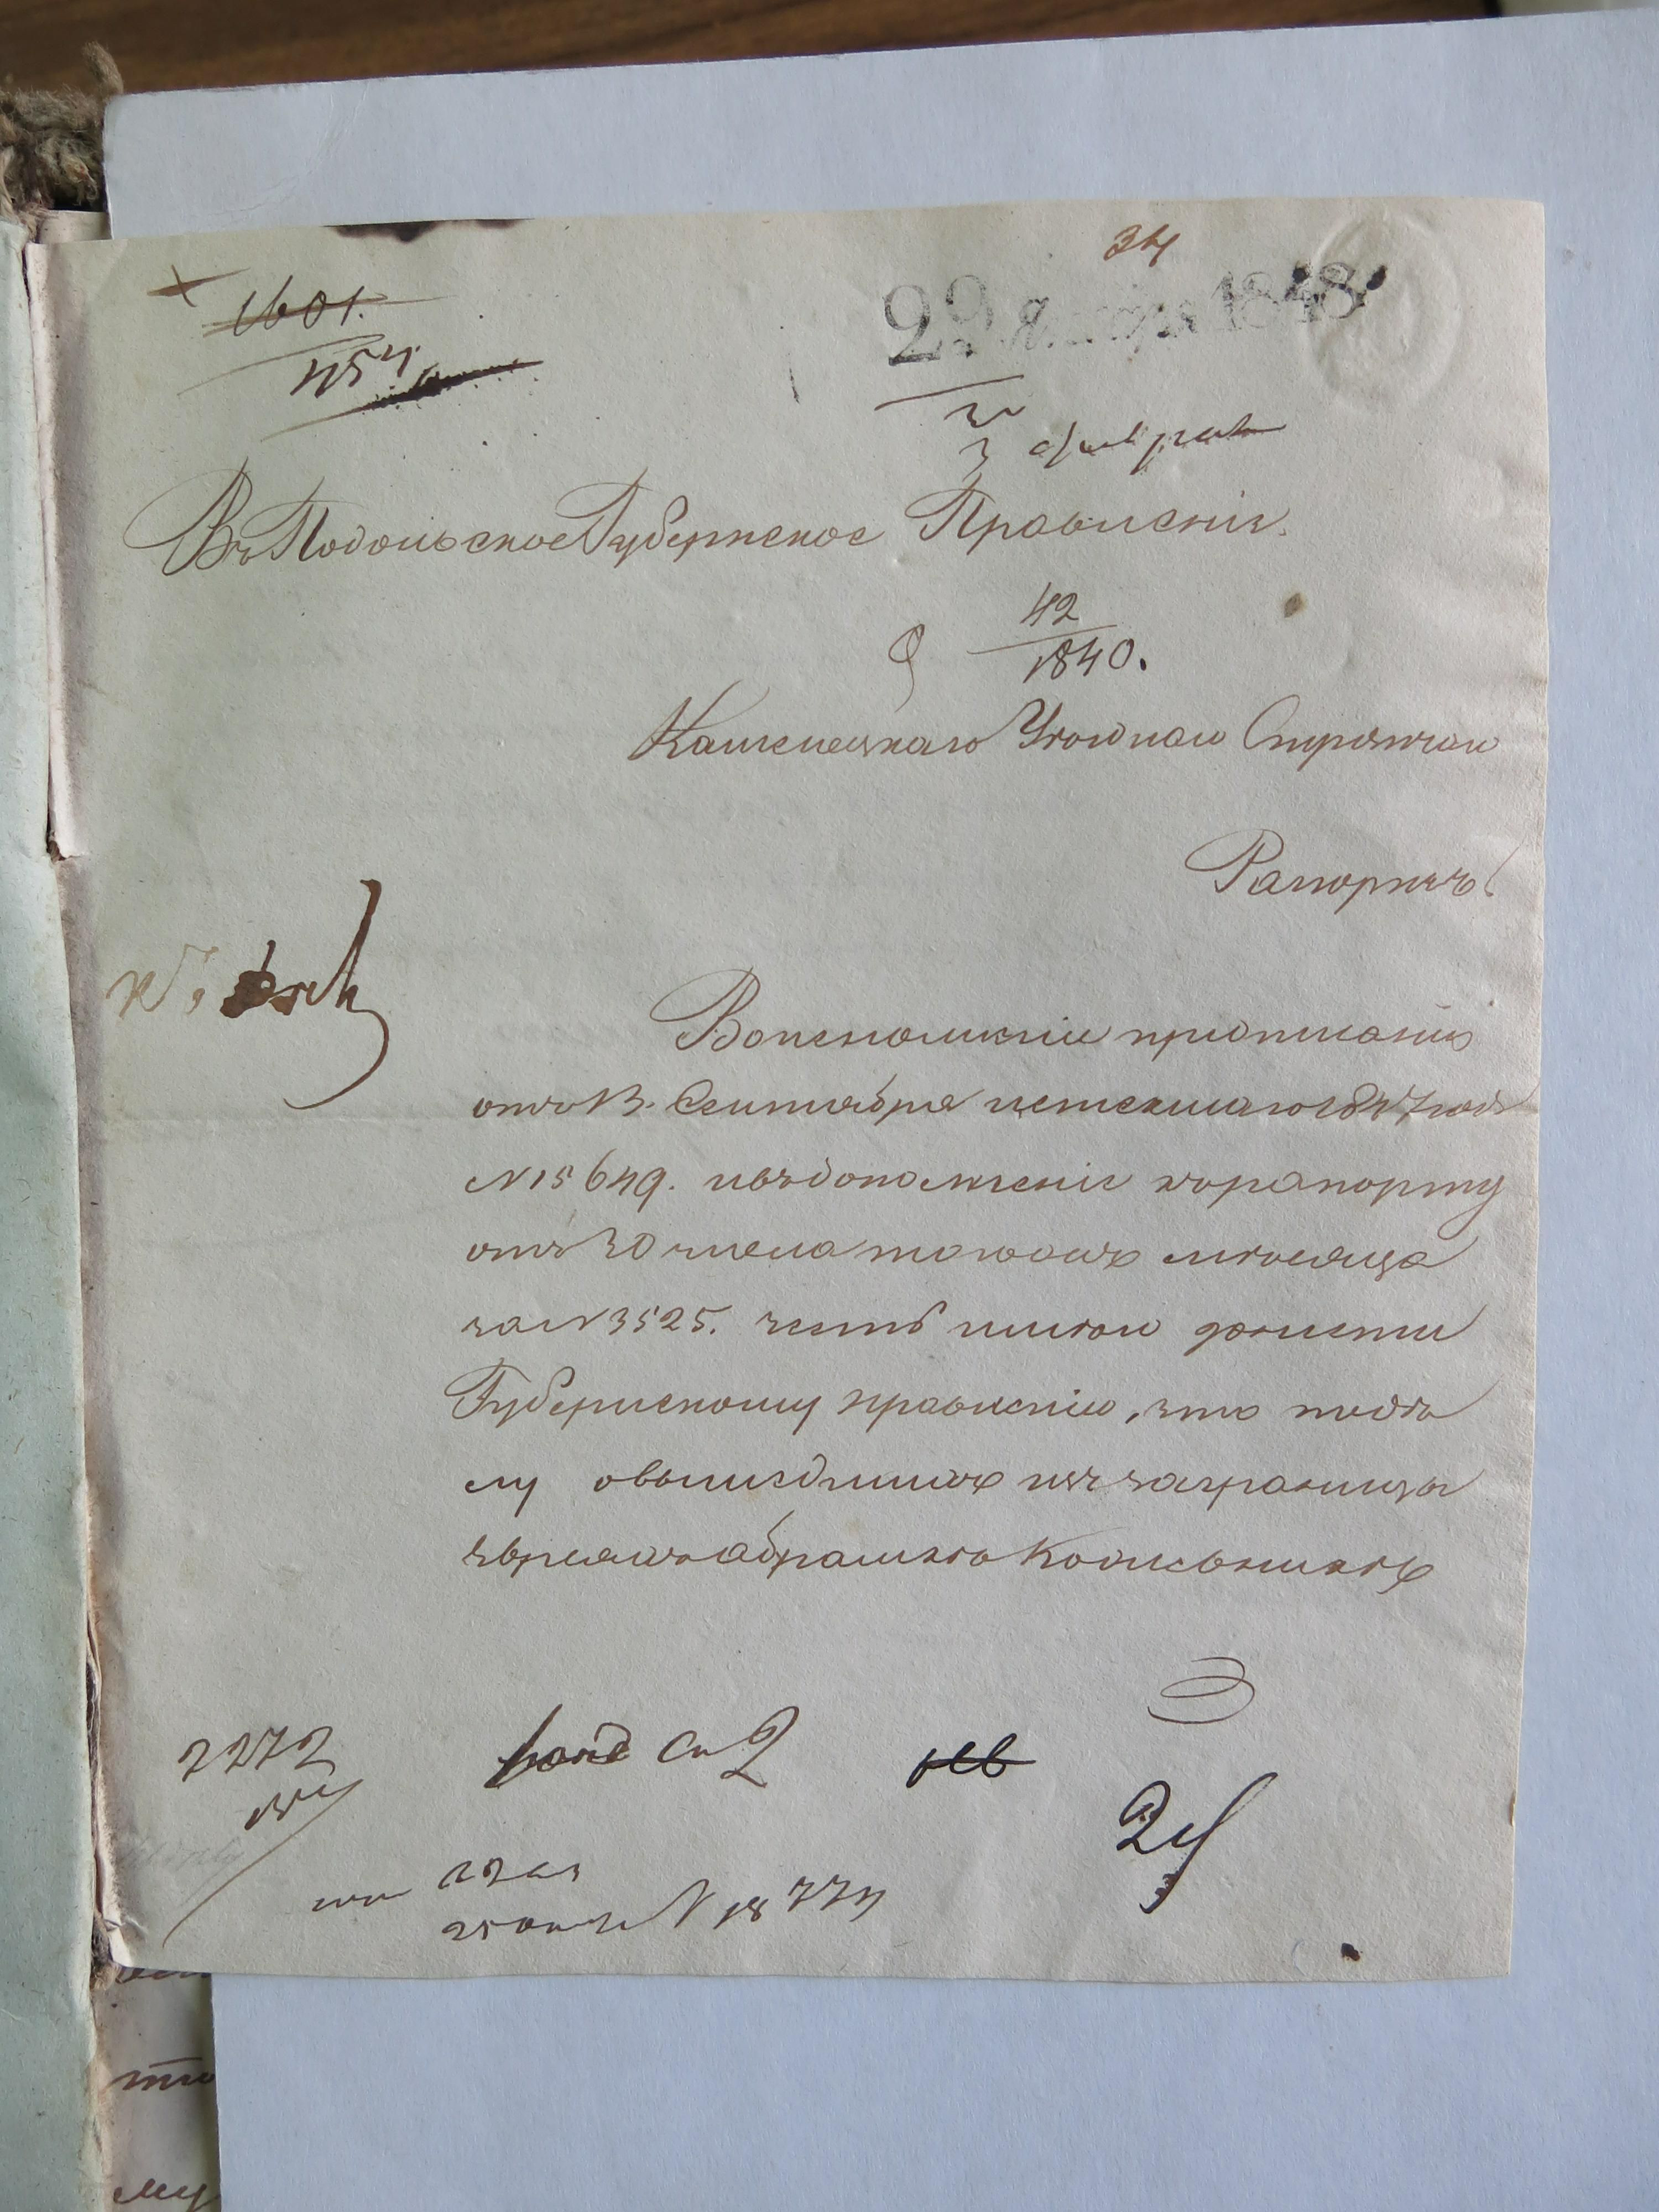 34
1601.
454
29 Января 1848
3 февраля
Въ Подольское Губернское Правленіе.
42
1840.
Каменецкаго Уезднаго Стряпчаго
Рапортъ.
Во исполненіе предписанія
отъ 13. Сентября истекшаго 1847 года
N 15649. и въ дополненіе к рапорту
отъ 30 числа тогожъ месяца
за N 3525. честь имею донести
Губернскому правленію, что по де
лу о вышедшихъ изъ заграницы
евреяхъ Абрамке Ковальникъ
2272
N 18774
24